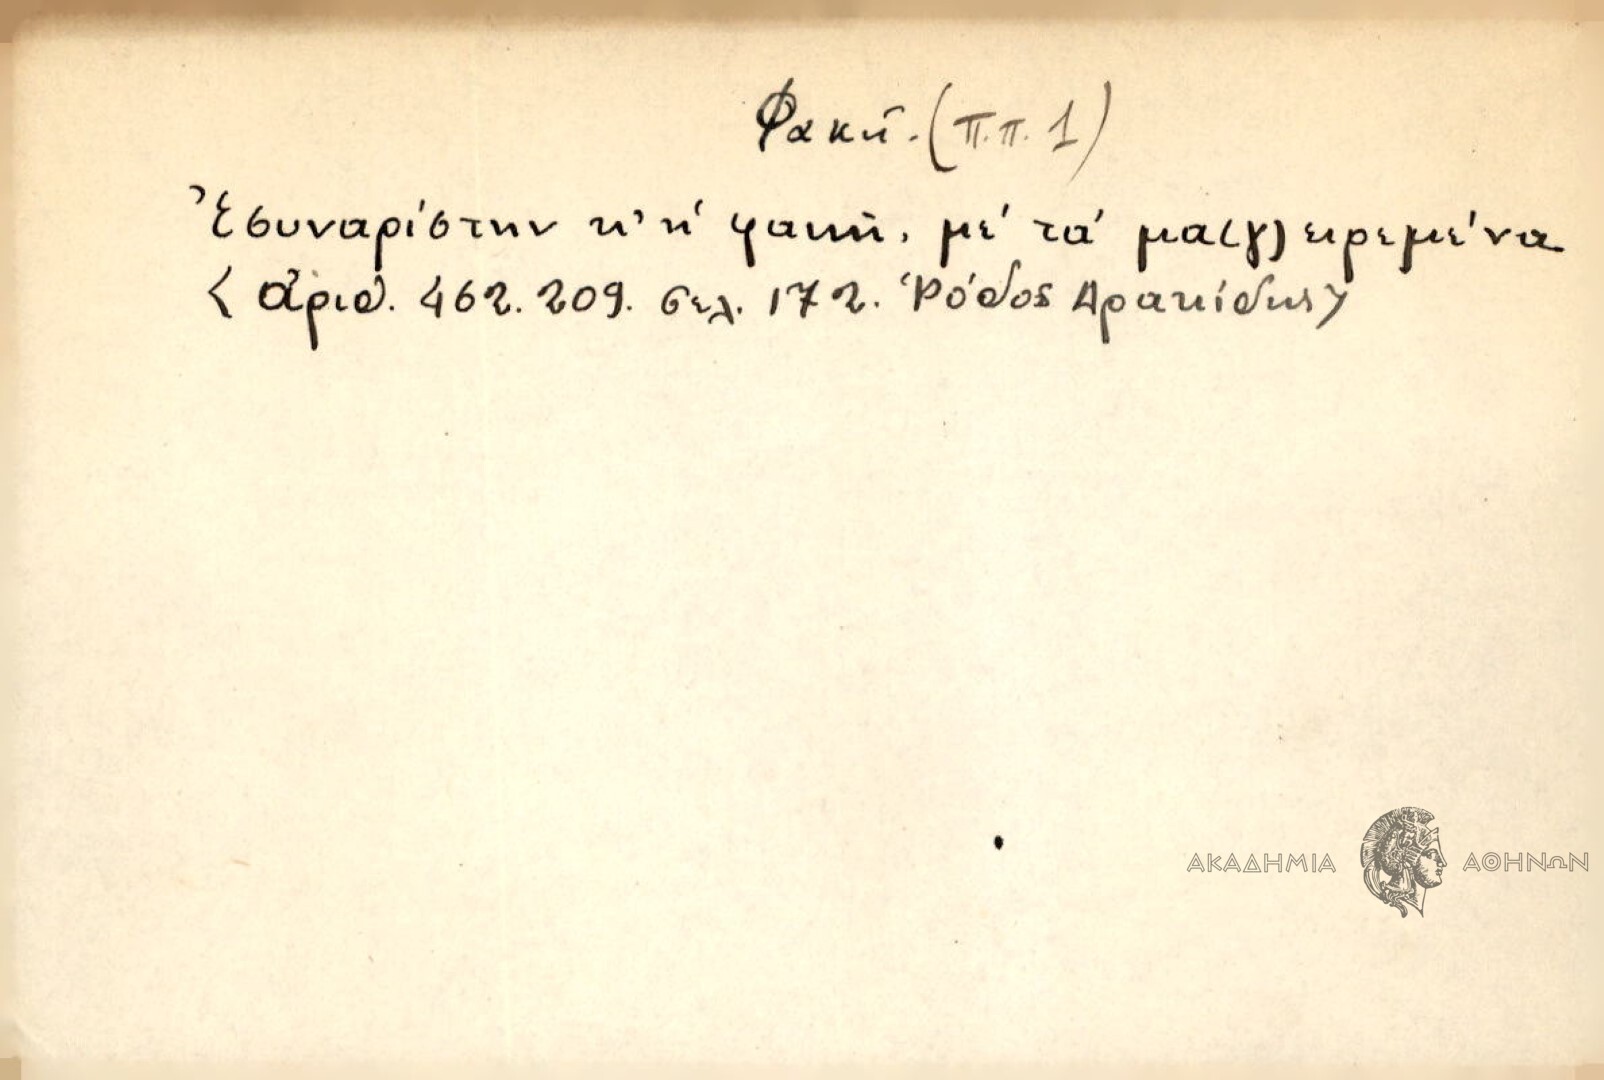 Φακή. (π.π. 1)
Ἐσυναρίστην κ' ἡ φακῆ, μέ τά μα(γ)ειρεμένα
< ἀριθ. 462. 209. σελ. 172. Ῥόδος Δρακίδης>
ΑΚΑΔΗΜΙΑ ΑΘΗΝΩΝ